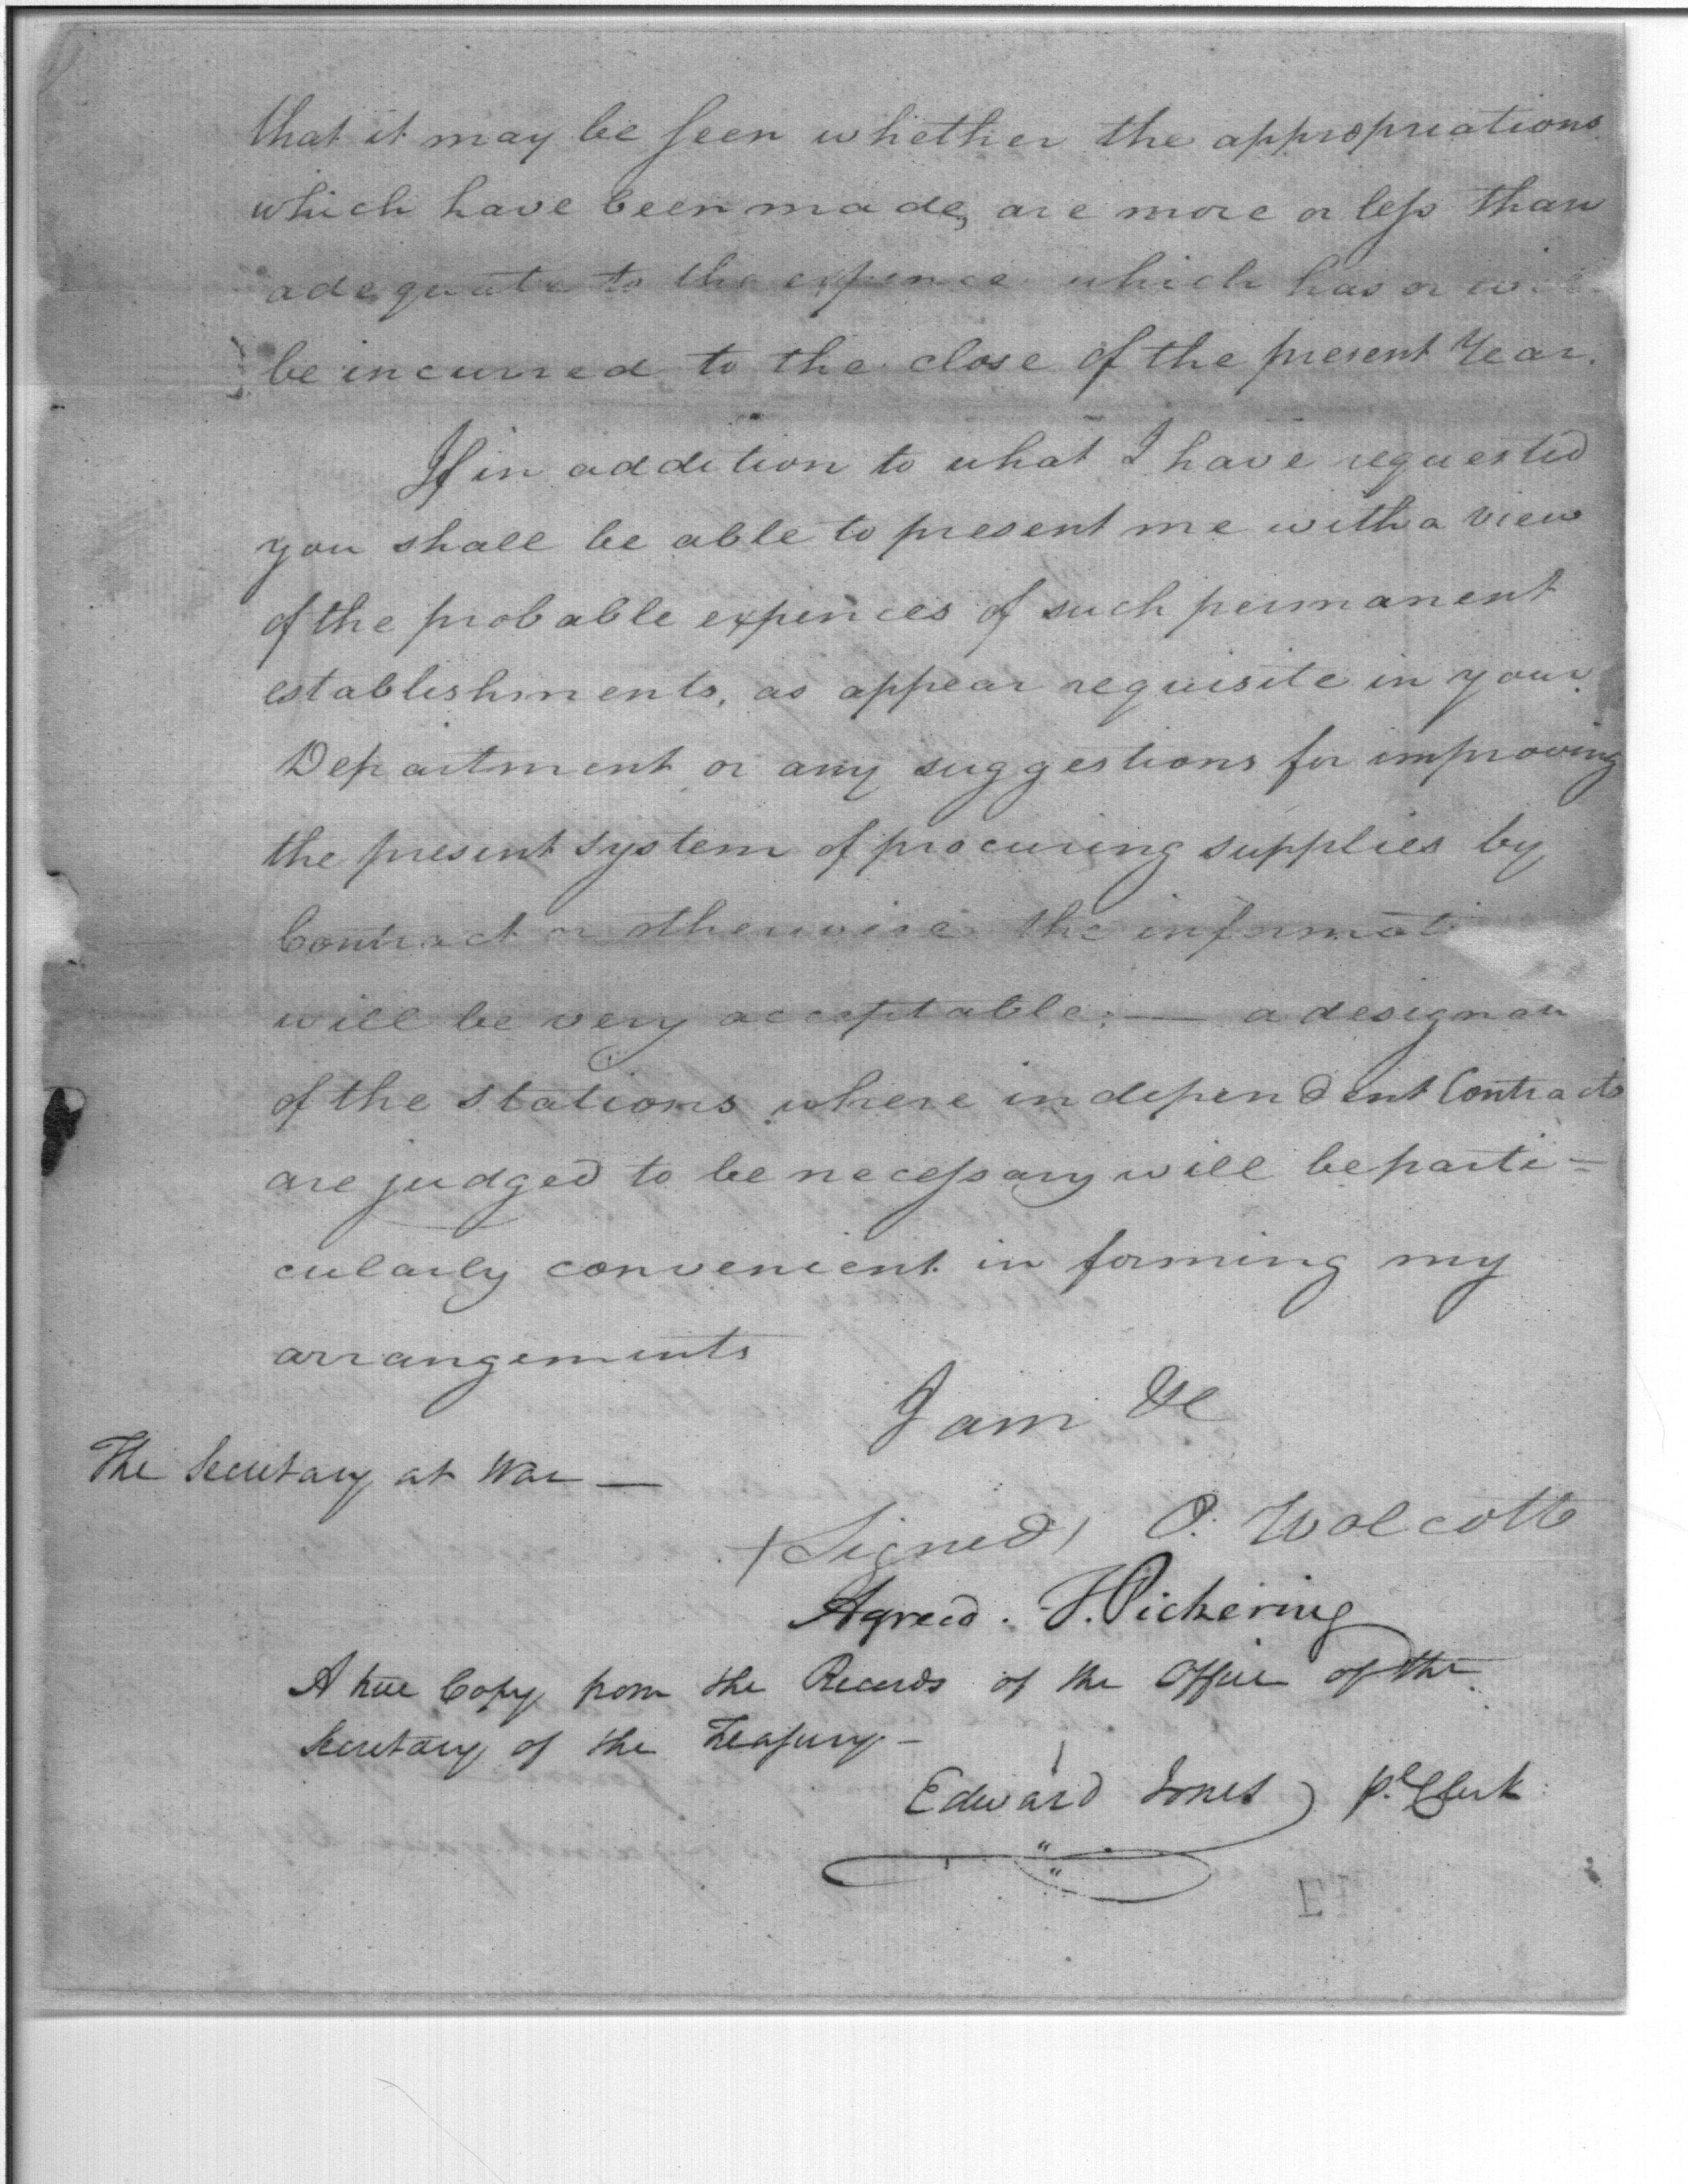 that it may be seen whether the appropriations
which have been made, are more or less than
adequate to the expence which has or will
be incurred to the close of the present Year.
If in addition to what I have requested
you shall be able to present me with a view
of the probable expences of such permanent
establishments, as appear requisite in your
Department or any suggestions for improving
the present system of procuring supplies by
Contract or otherwise the informati
will be very acceptable; — a designa
of the stations where independent Contracts
are judged to be necessary will be parti-
cularly convenient in forming my
arrangements
I am &c
The Secretary at War —
(Signed) O. Wolcott
Agreed. T. Pickering
A true Copy from the Records of the Office of the
Secretary of the Treasury —
Edward Jones pl. Clerk